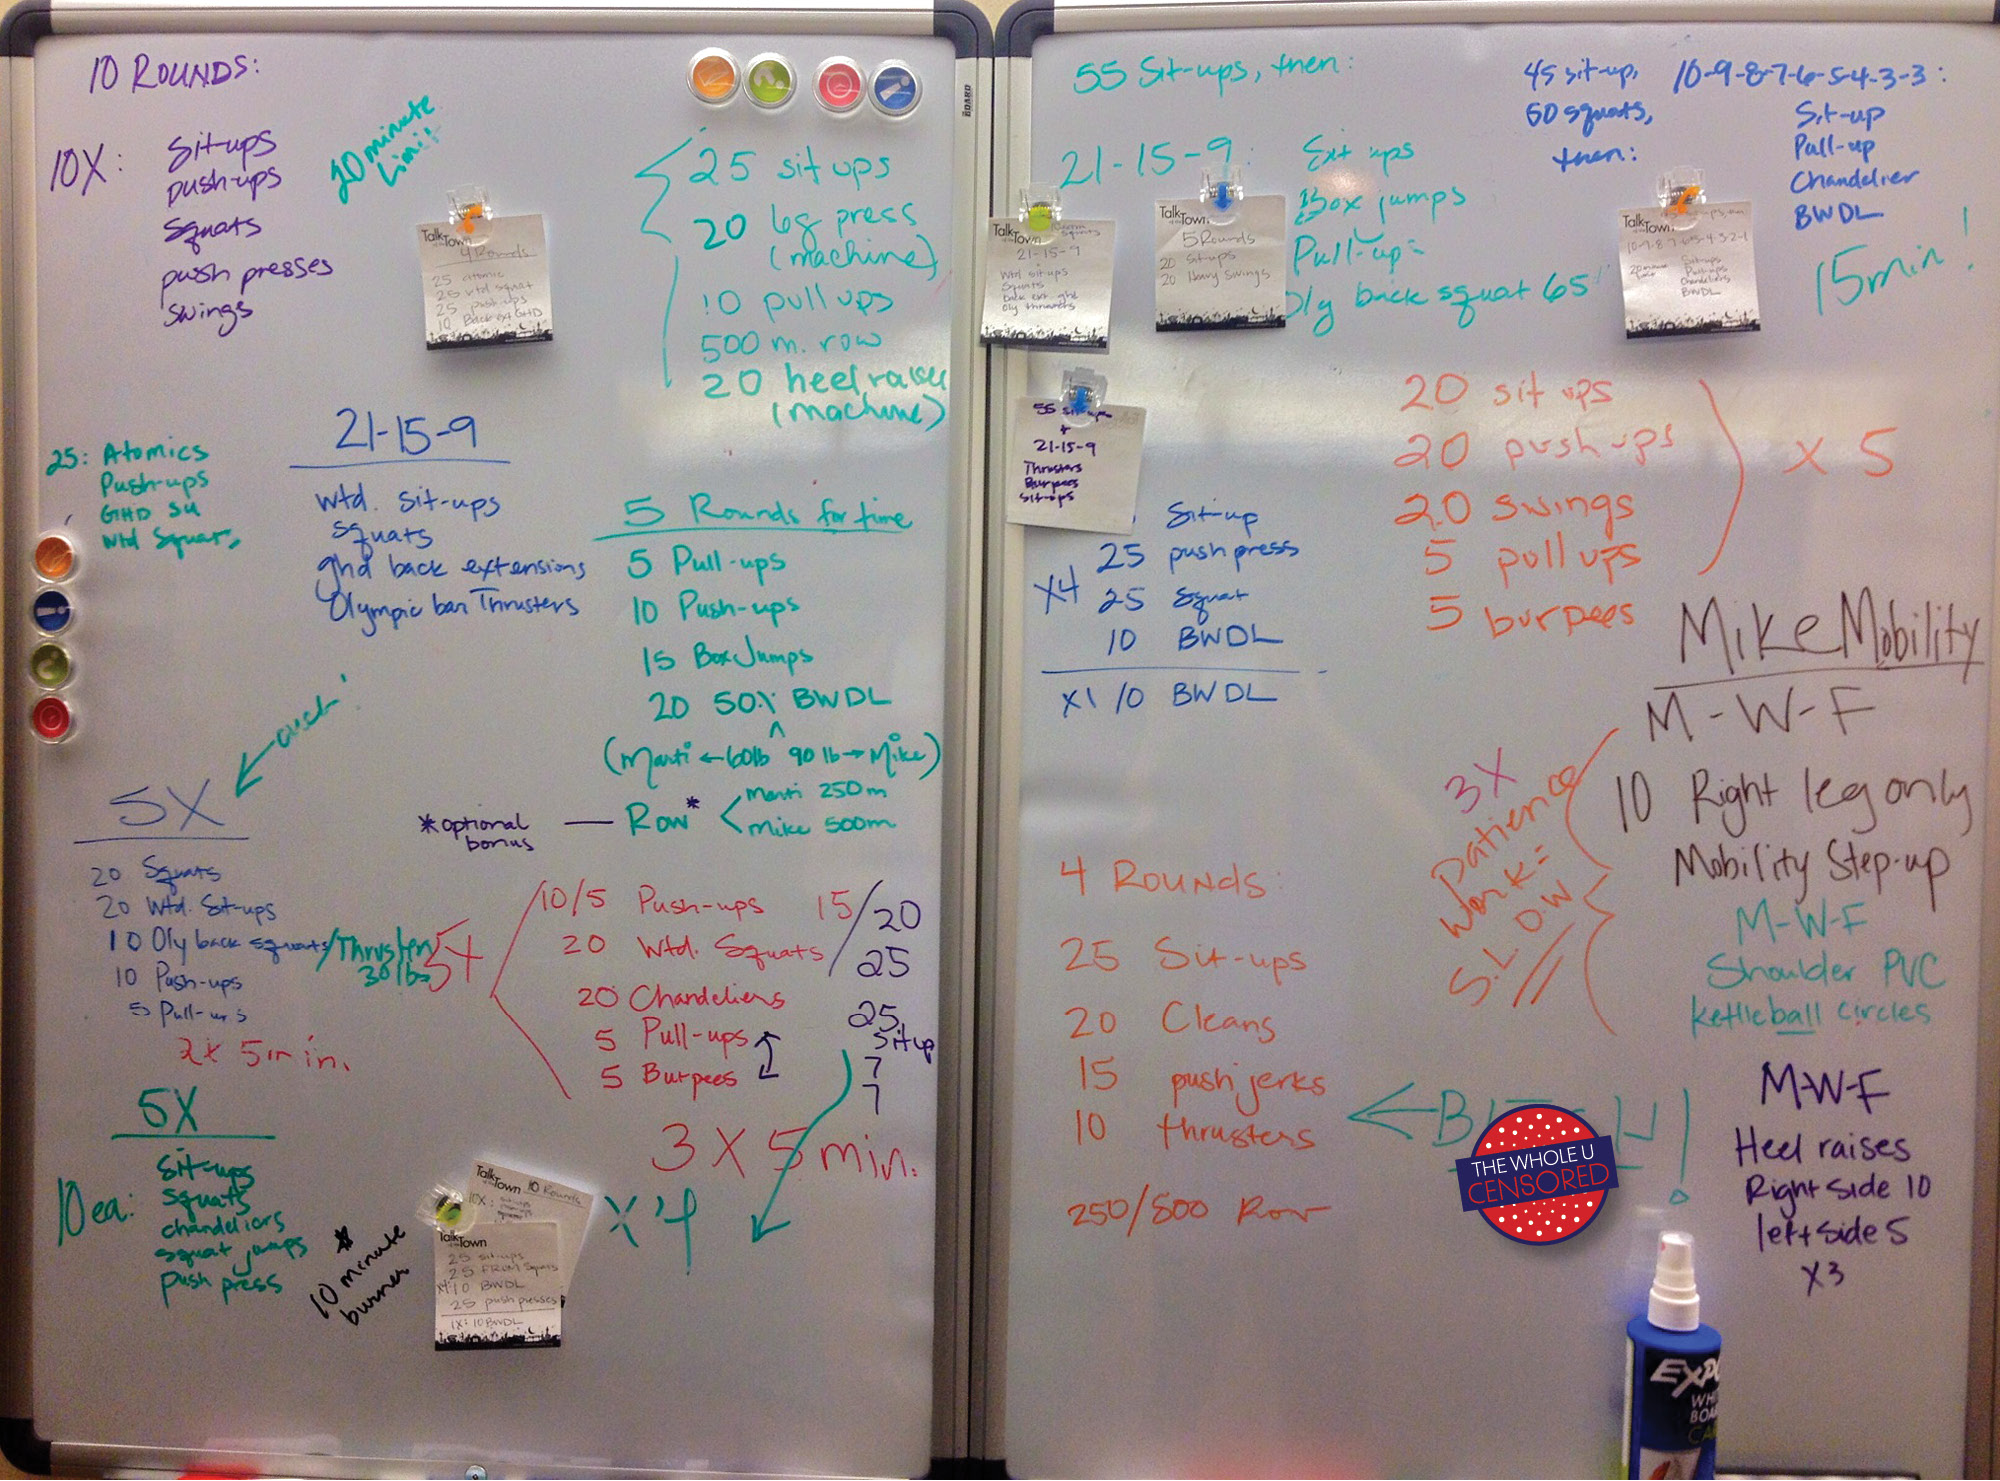 10 ROUNDS:
10X:
Sit-ups
push-ups
Squats
push presses
swings
20 minute
limit
Talk of the Town
4 Rounds
25 atomic
25 wtd squat
25 push-ups
10 Back ext GHD
25 sit ups
20 leg press
(machine)
10 pull ups
500 m. row
20 heel raises
(machine)
25: Atomics
Push-ups
GHD SU
Wtd Squats
21-15-9
wtd. sit-ups
squats
ghd back extensions
Olympic bar Thrusters
5 Rounds for time
5 Pull-ups
10 Push-ups
15 Box Jumps
20 50% BWDL
(Marti ← 60lb 90 lb → Mike)
*optional
bonus
— Row*
Marti 250m
Mike 500m
ouch!
5X
20 Squats
20 Wtd. Sit-ups
10 Oly back squats/Thrusters
30 lbs
10 Push-ups
5 Pull-ups
2x 5min.
5X
10/5 Push-ups 15/20
20 Wtd. Squats 25
20 Chandeliers 25
sit up
5 Pull-ups 7
5 Burpees 7
3 X 5 min.
x 4
5X
10 ea:
Sit-ups
Squats
chandeliers
squat jumps
push press
*
10 minute
burner
Talk of the Town
10 Rounds
10X:
Talk of the Town
25 sit-ups
25 FRONT Squats
x4: 10 BWDL
25 push presses
1X: 10 BWDL
BOARD
55 Sit-ups, then:
21-15-9:
Sit ups
Box jumps
Pull-ups
Oly back squat 65
Talk of the Town
21-15-9
Wtd sit-ups
Squats
back ext. ghd
Oly thrusters
Talk of the Town
5 Rounds
20 sit-ups
20 Heavy Swings
45 sit-up,
60 squats,
then:
10-9-8-7-6-5-4-3-3:
Sit-up
Pull-up
Chandelier
BWDL
15 min!
Talk of the Town
10-9-8-7-6-5-4-3-2-1
Sit-ups
Push-ups
Chandeliers
BWDL
55 sit-ups
+
21-15-9
Thrusters
Burpees
Sit-ups
20 sit ups
20 push ups
20 swings
5 pull ups
5 burpees
x 5
x4
Sit-up
25 push press
25 Squat
10 BWDL
x1 10 BWDL
Mike Mobility
M-W-F
10 Right leg only
Mobility Step-up
3X
Patience
Work =
S.L.O.W
M-W-F
Shoulder PVC
kettleball circles
M-W-F
Heel raises
Right side 10
left side 5
x3
4 ROUNDS:
25 Sit-ups
20 Cleans
15 push jerks
10 thrusters
250/500 Row
THE WHOLE U
CENSORED
EXPO